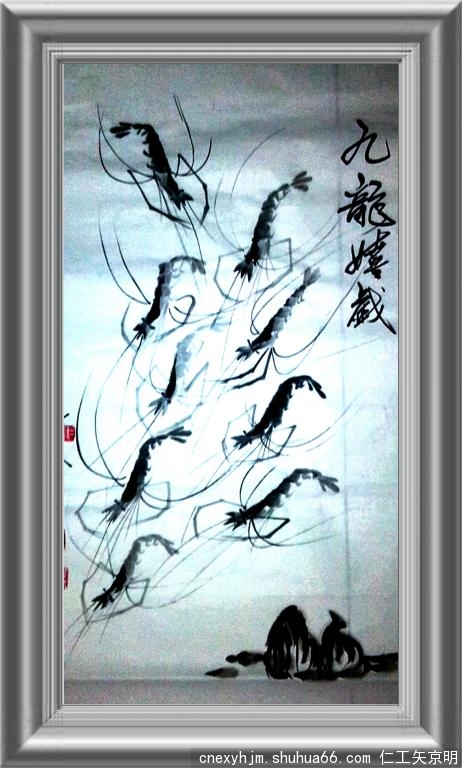 九龍嬉戲
cnexyhjm.shuhua66.com 仁工矢京明